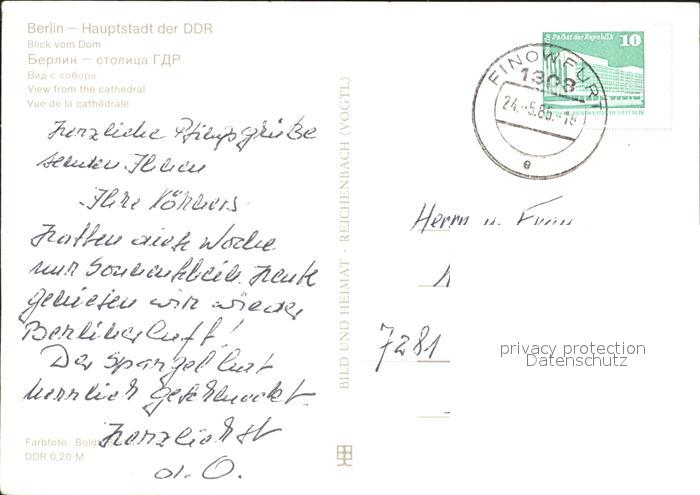 Berlin – Hauptstadt der DDR
Blick vom Dom
Берлин – столица ГДР
Вид с собора
View from the cathedral
Vue de la cathédrale
Herzliche Pfingstgrüße
senden Ihnen
Ihre Körners
Hatten diese Woche
nur Sonnenschein. Heute
genießen wir wieder
Berliner Luft!
Der Spargel hat
herrlich geschmeckt.
Herzlichst
d. O.
Farbfoto:
DDR 0,20 M
BILD UND HEIMAT · REICHENBACH (VOGTL)
Palast der Republik
10
FINOWFURT
1303
24.-5.85.-18
a
Herrn u. Frau
7281
privacy protection
Datenschutz